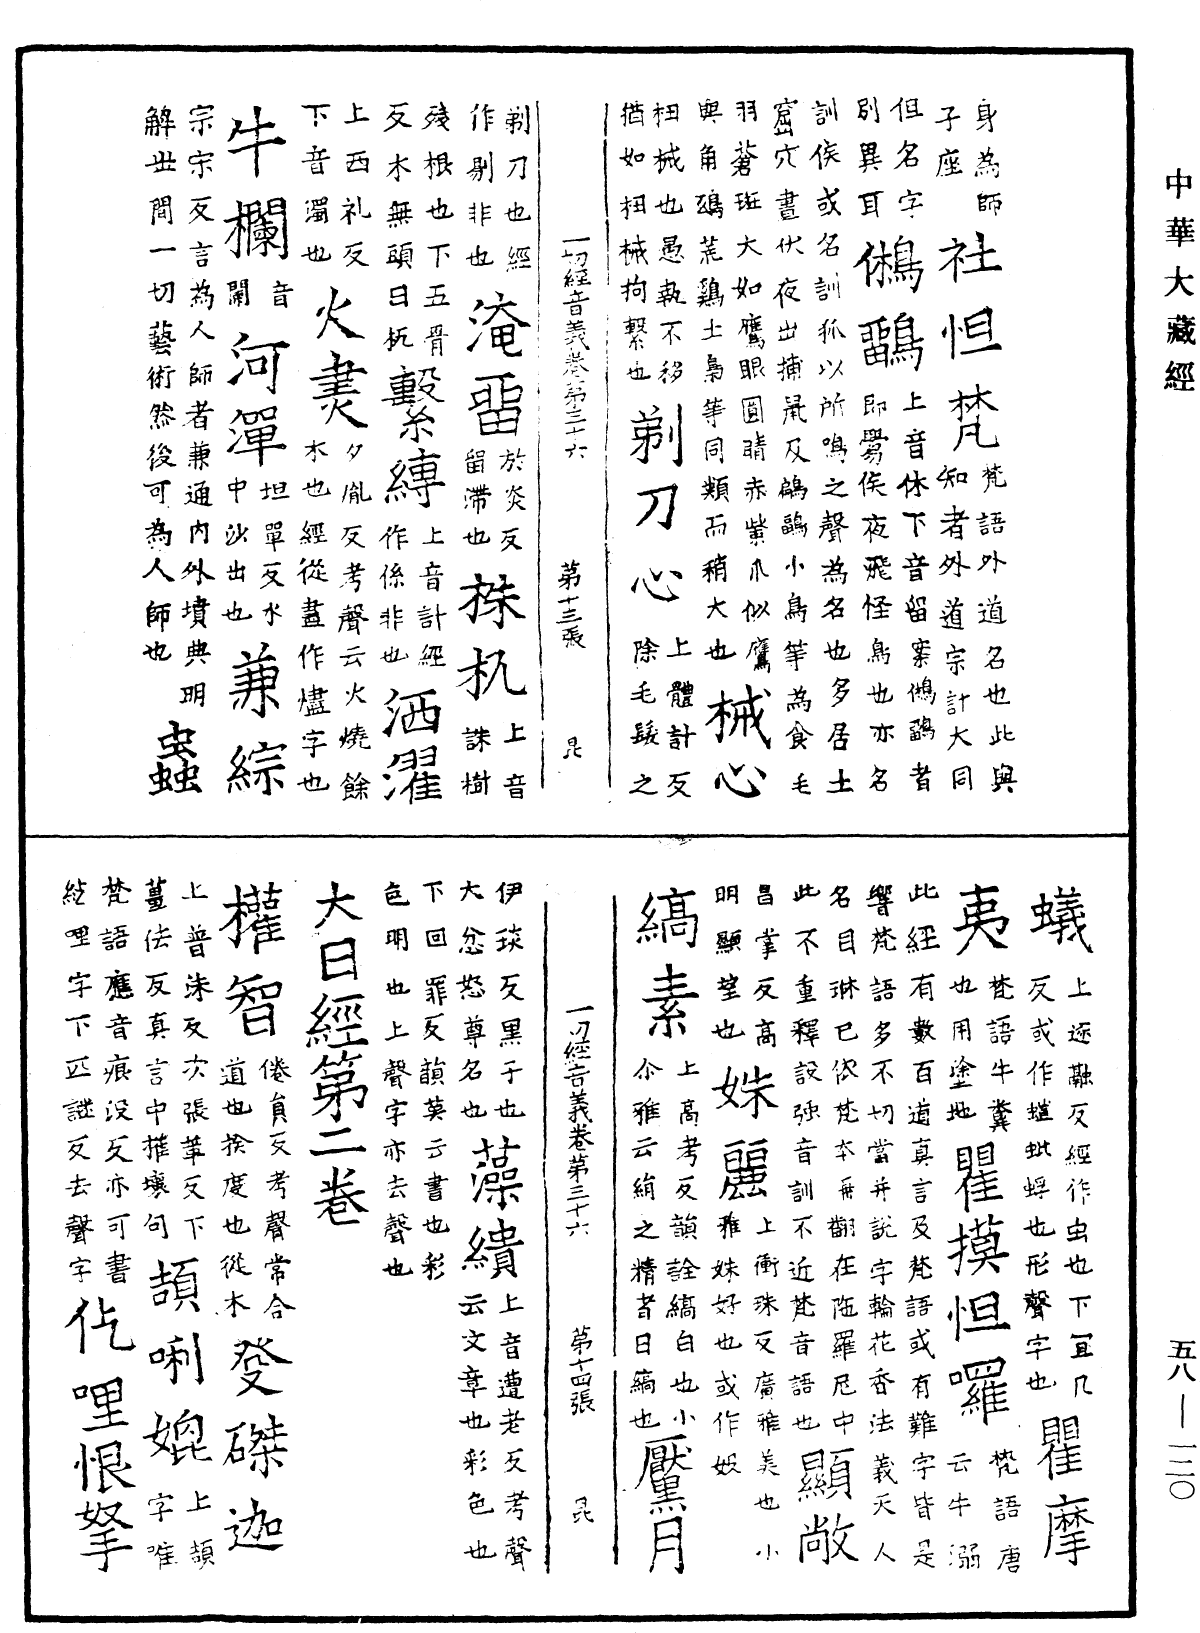 中華大藏經
身為師子座 社怛梵 梵語外道名也此與知者外道宗計大同
但名字別異耳 鵂鶹 上音休下音留案鵂鶹者即侯夜飛怪鳥也亦名
訓侯或名訓狐以所鳴之聲為名也多居土窟穴晝伏夜出捕鼠及鴟鵂小鳥等為食毛
羽蒼斑大如鷹眼圓睛赤觜爪似鷹與角鴟荒鷄土梟等同類而稍大也 械心
杻械也愚執不移猶如杻械拘繫也 剃刀心 上體計反除毛髮之
一切經音義卷第三十六 第十三張 昆
剃刀也經作剔非也 淹留 於炎反留滯也 株杌 上音誅樹
殘根也下五骨反木無頭曰杌 繫縛 上音計經作係非也 洒濯
上西礼反下音濁也 火㶳 夕胤反考聲云火燒餘木也經從盡作燼字也
牛欄 音闌 河潬 坦單反水中沙出也 兼綜
宗宋反言為人師者兼通內外墳典明解世間一切藝術然後可為人師也 蟲
蟻 上逐融反經作虫也下冝几反或作螘蚍蜉也形聲字也 瞿摩
夷 梵語牛糞也用塗地 瞿摸怛囉 梵語唐云牛溺
此經有數百道真言及梵語或有難字皆是響梵語多不切當并說字輪花香法義天人
名目琳已依梵本再翻在陁羅尼中此不重釋設強音訓不近梵音語也 顯敞
昌掌反高明顯望也 姝麗 上衝珠反廣雅美也小雅姝好也或作
縞素 上高考反韻詮縞白也小尒雅云絹之精者曰縞也 黶月
一切經音義卷第三十六 第十四張 昆
伊琰反黑子也大忿怒尊名也 藻繢 上音遭老反考聲云文章也彩色也
下回罪反韻英云書也彩色明也上聲字亦去聲也
大日經第二卷
權智 倦員反考聲常合道也揆度也從木 發磔迦
上普沫反次張革反下薑佉反真言中摧壞句 頡唎媲 上頡字准
梵語應音痕没反亦可書紇哩字下匹謎反去聲字 仡哩恨拏
五八—一二〇